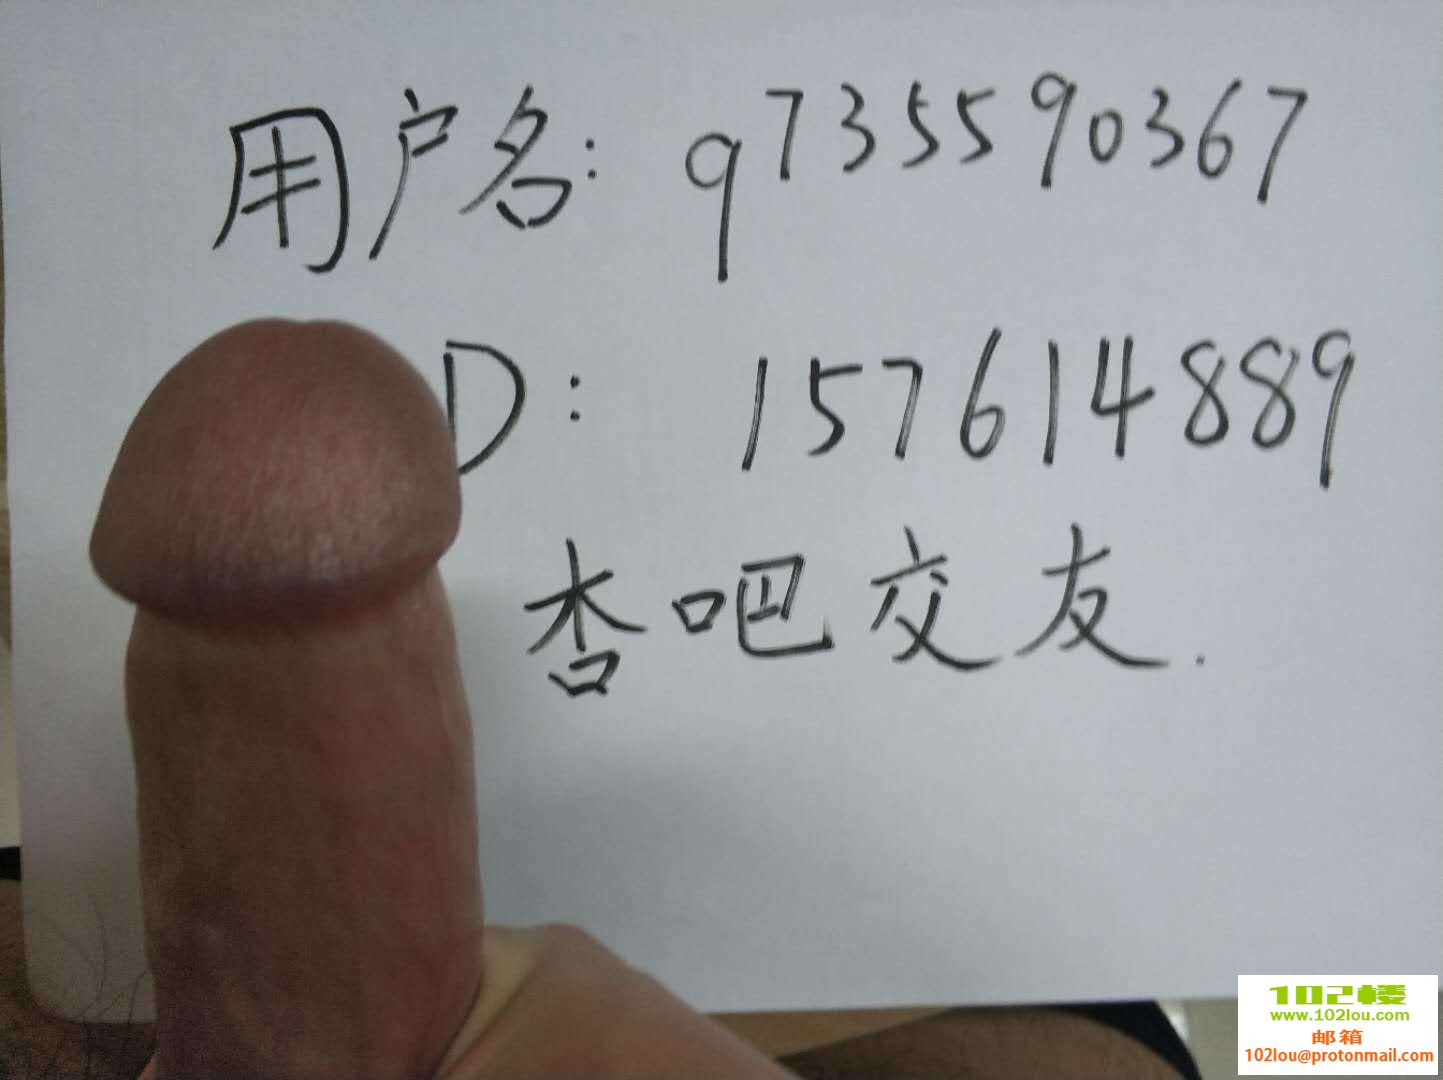 用户名: q735590367
D: 157614889
杏吧交友.
102楼
www.102lou.com
邮箱
102lou@protonmail.com